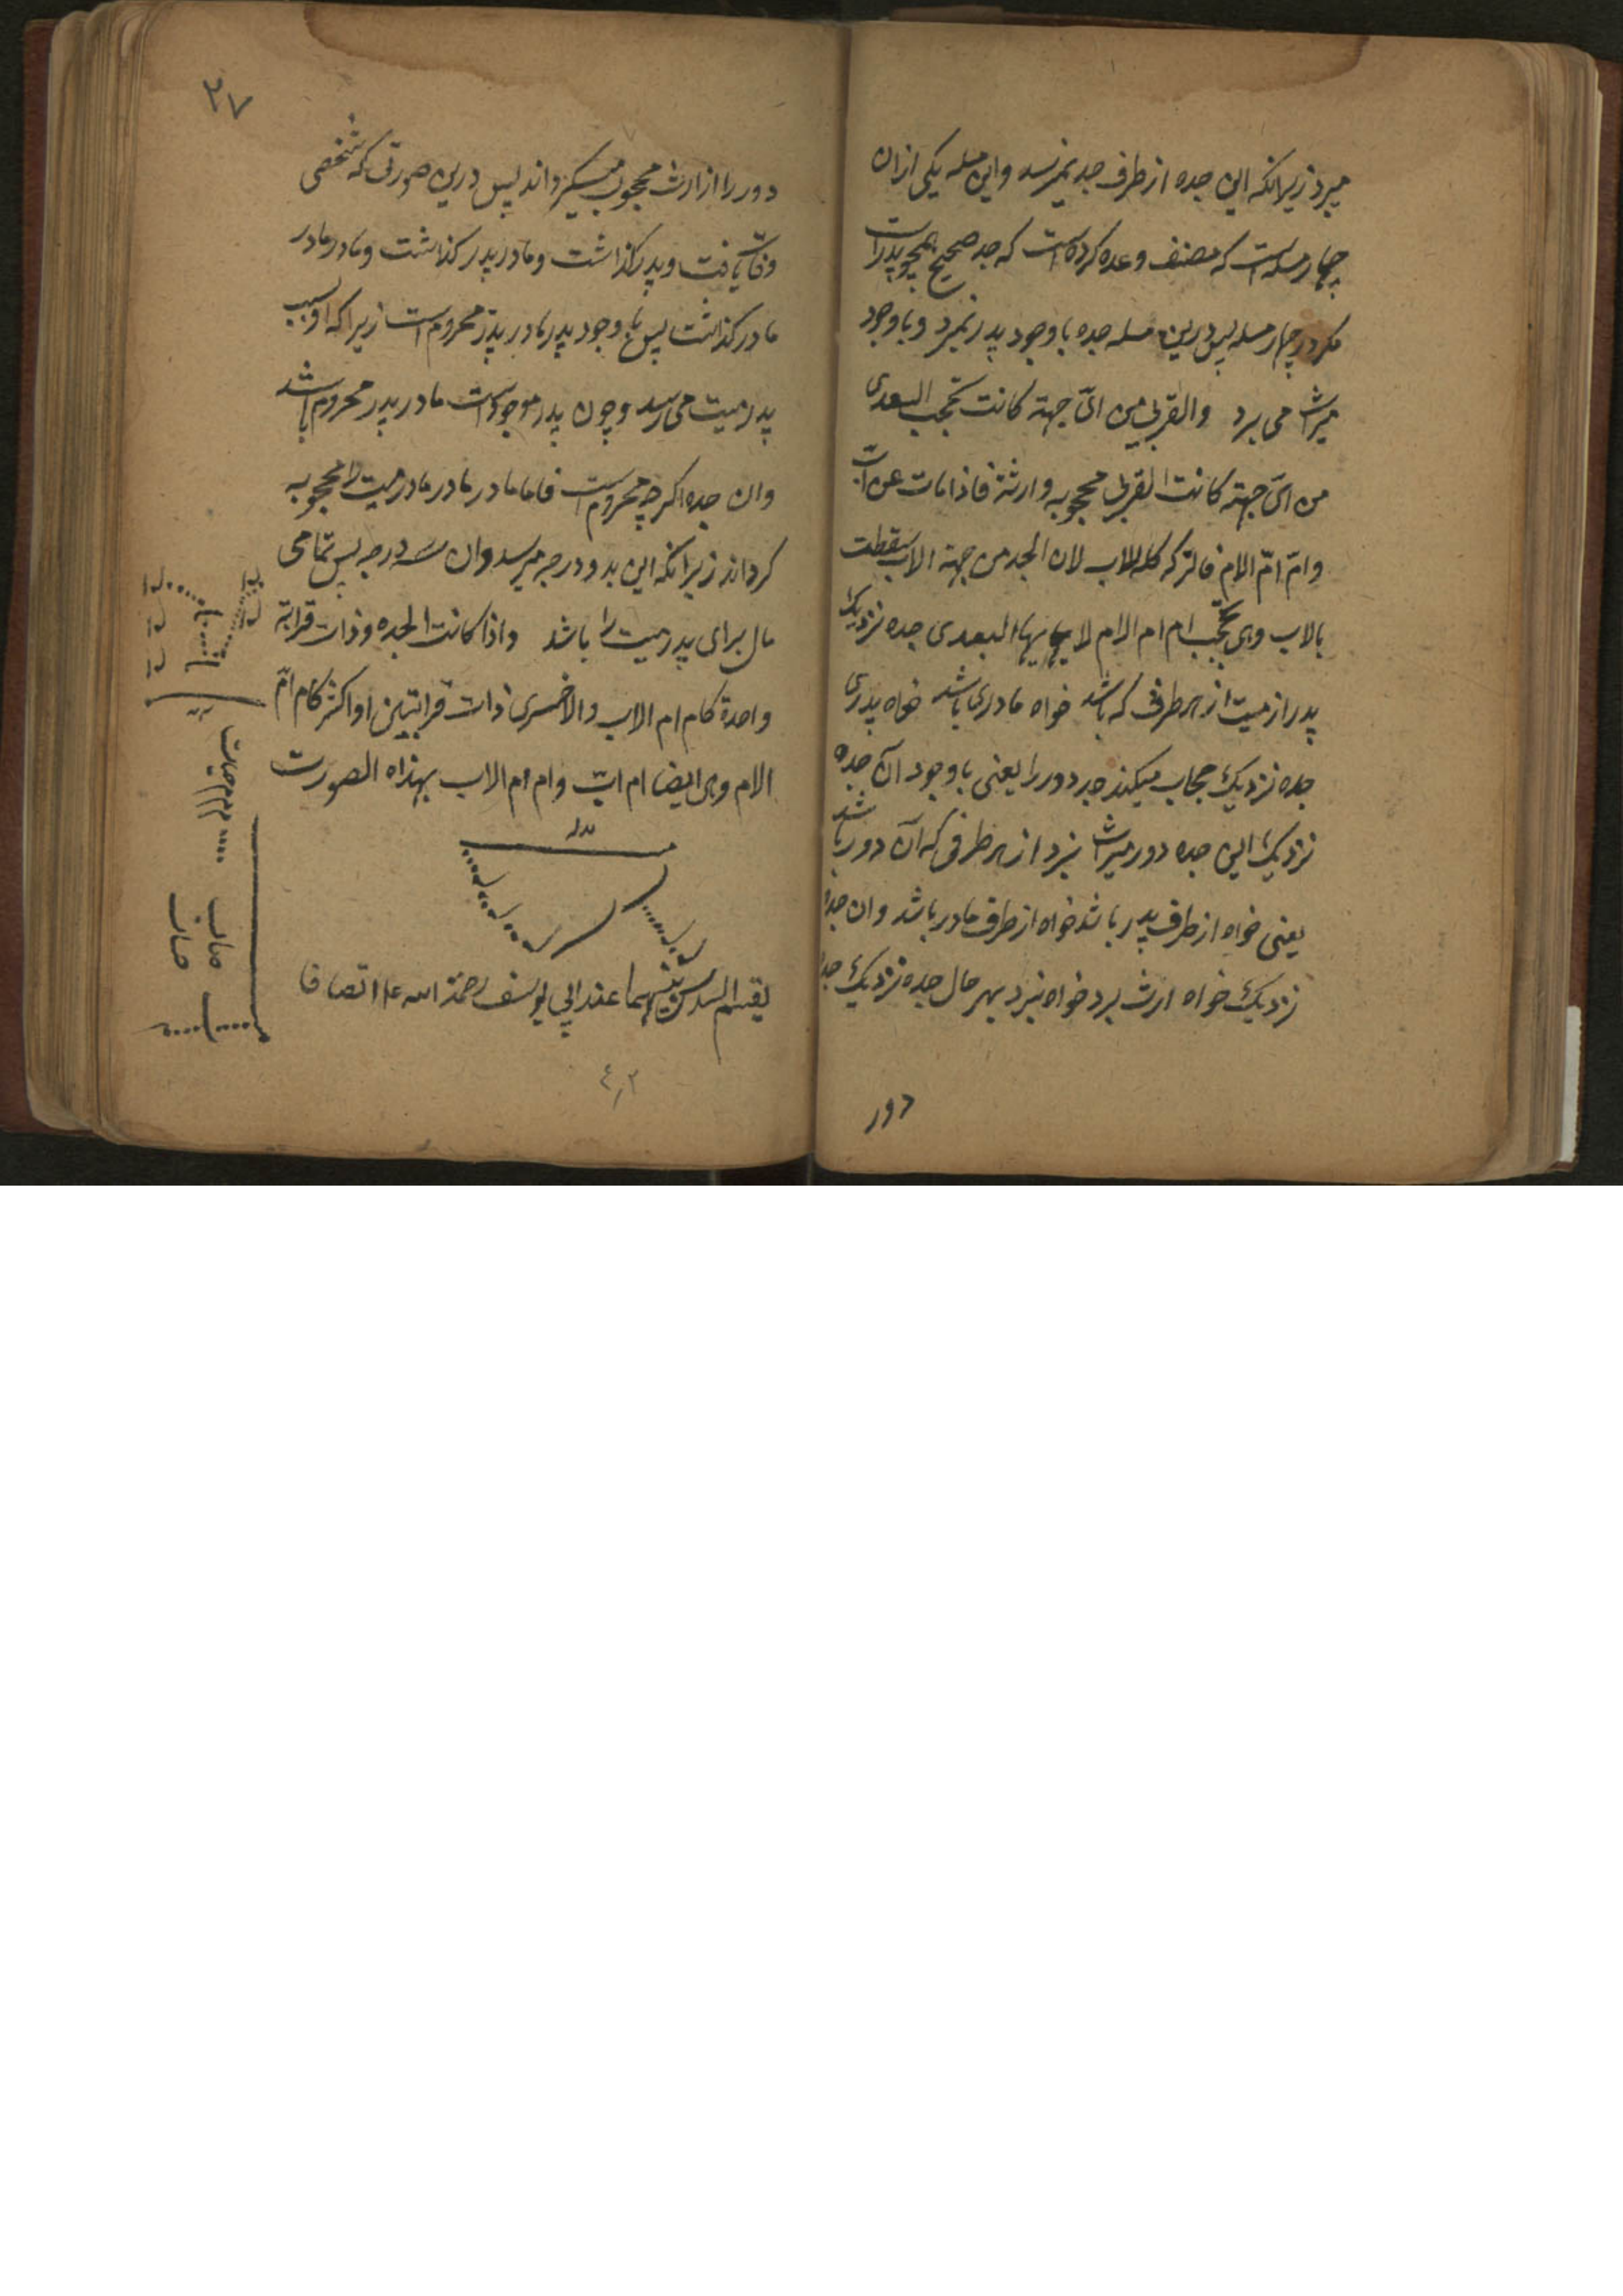 میبرد زیرانکه این جده از طرف جد نمیرسد واین مسله یکی ازان
چهار مسله است که مصنف وعده کرده است که جد صحیح همچو پدر است
مکر در چهار مسله پس درین مسله جده با وجود پدر نمیبرد و با وجود
میراث می برد والقربی من ای جهة کانت تحجب البعدی
من ای جهة کانت القربی محجوبه وارثة فاذا مات عن اب
وام ام الام فالترکه کله للاب لان الجده من جهة الاب سقطت
بالاب وهی تحجب ام ام الام لا یهابها البعدی جده نزدیک
پدر از میت از هر طرف که باشد خواه مادری باشد خواه پدری
جده نزدیک حجاب میکند جد دور را یعنی با وجود آن جده
نزدیک این جده دور میراث نبرد از هر طرفی که آن دور باشد
یعنی خواه از طرف پدر باشد خواه از طرف مادر باشد وان جده
نزدیک خواه ارث برد خواه نبرد بهر حال جده نزدیک جده
دور
۲۷
دور را از ارث محجوب میکرداند پس درین صورتی که شخصی
وفات یافت و پدر کذاشت و مادر پدر کذاشت و مادر مادر
مادر کذاشت پس با وجود پدر مادر پدر محروم است زیرا که او بسبب
پدر میت می رسد و چون پدر موجود است مادر پدر محروم باشد
وان جده اکرچه محروم است فاما مادر مادر مادر میت را محجوبه
کرداند زیرانکه این بدو درجه میرسد وان سه درجه پس تمامی
مال برای پدر میت را باشد واذا کانت الجده وذات قرابة
واحدة کام ام الاب والاخری ذات قرابتین او اکثر کام ام
الام وهی ایضا ام اب وام ام الاب بهذاه الصورت
یقسم السدس بینهما عند ابی یوسف رحمة الله علا انصافا